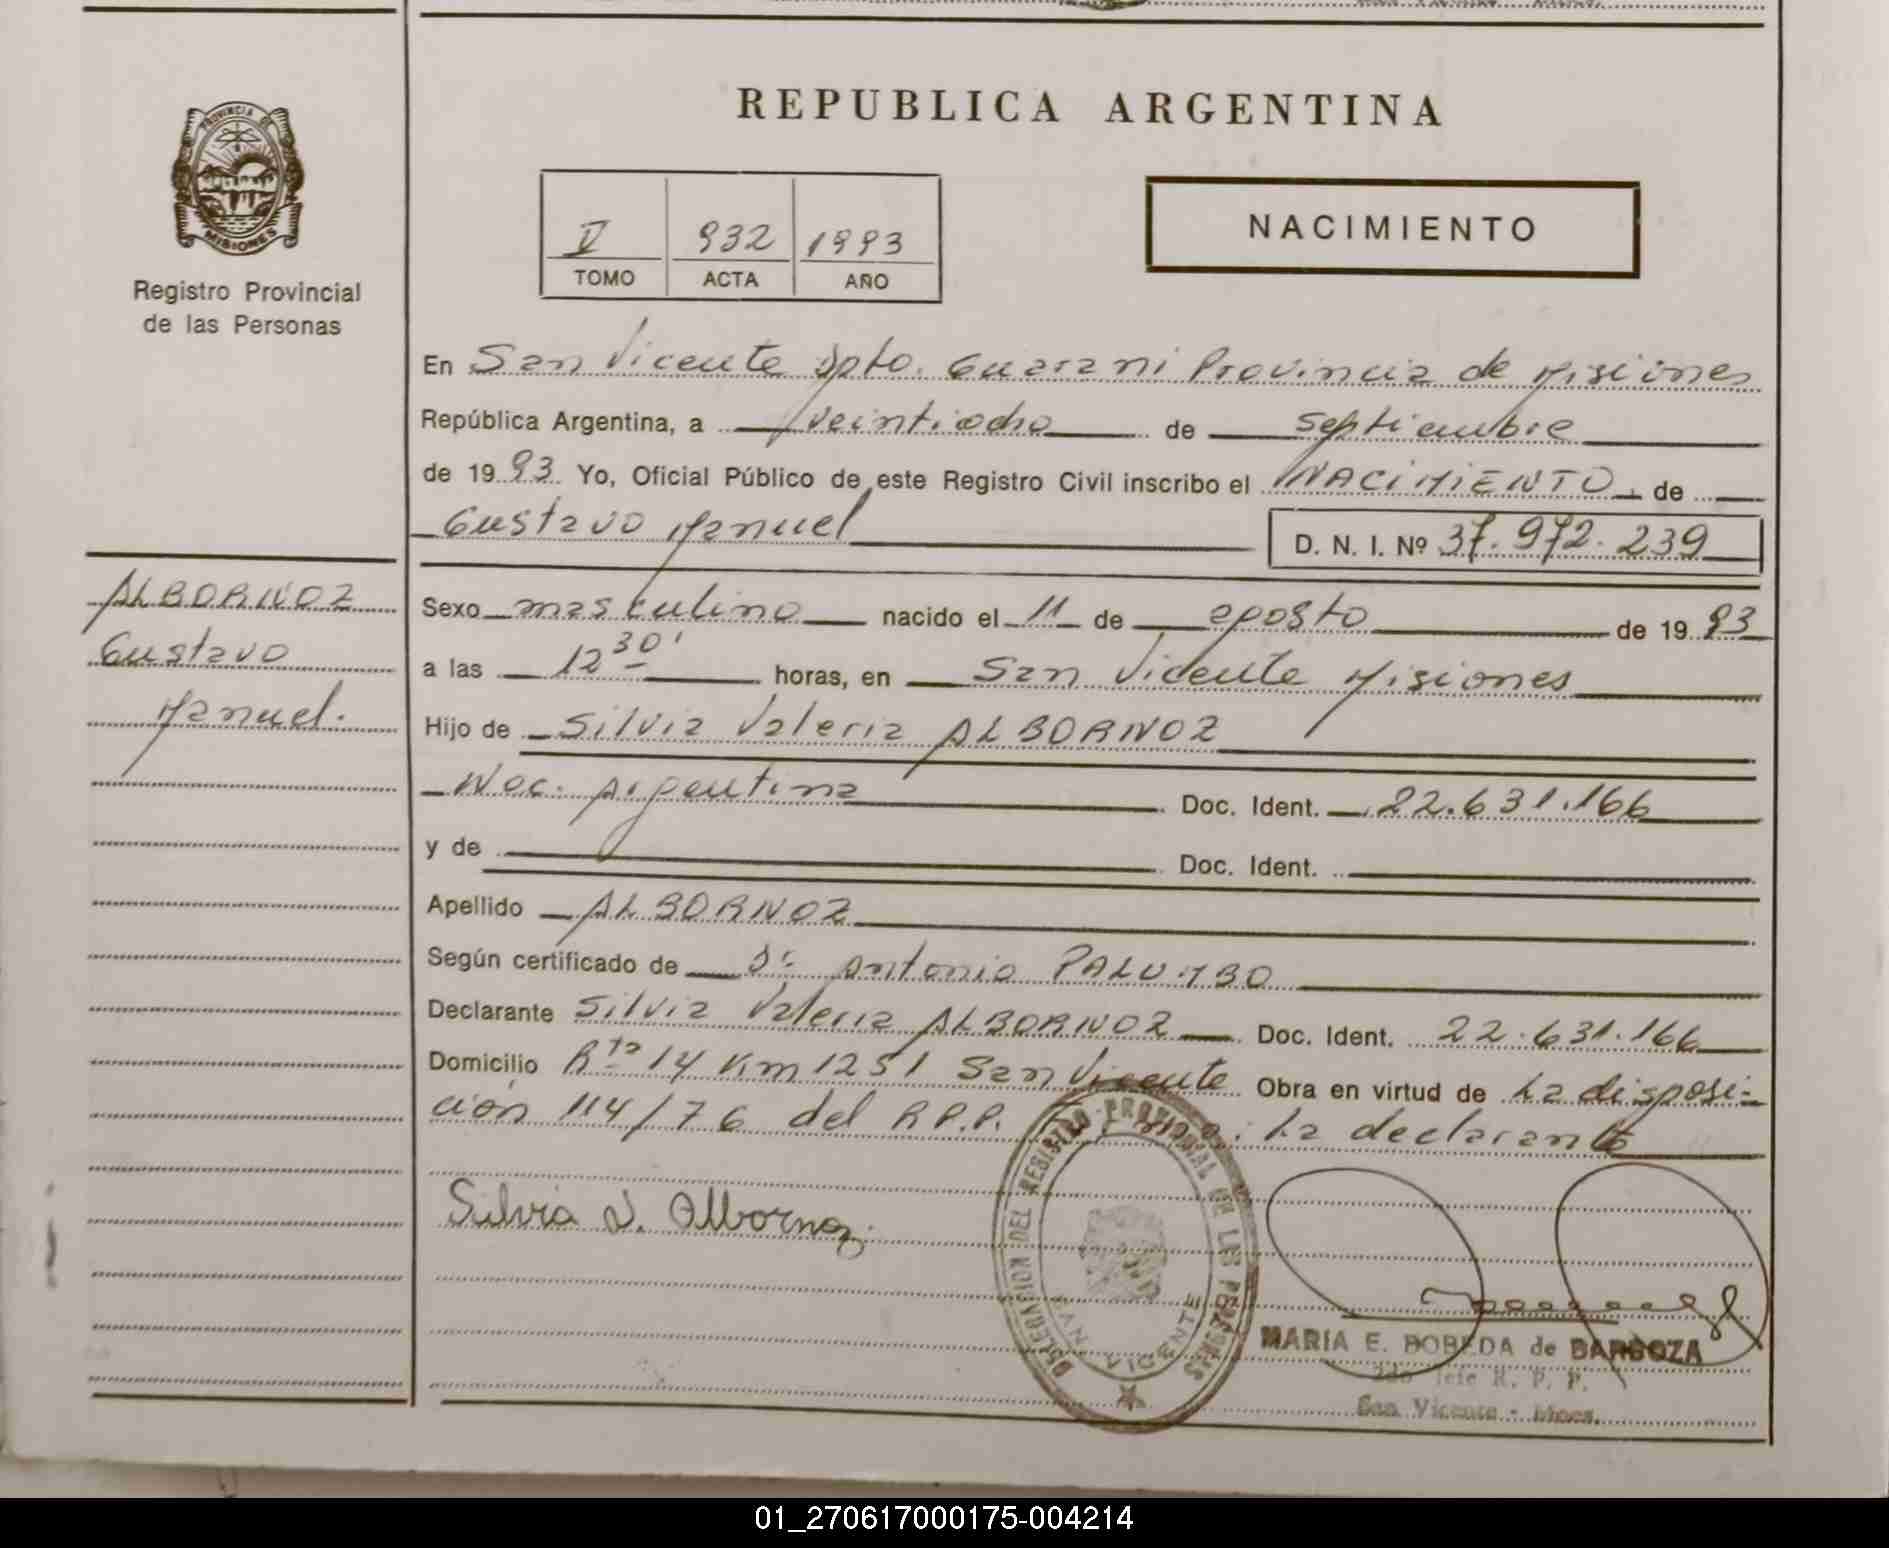 PROVINCIA DE
MISIONES
Registro Provincial
de las Personas
REPUBLICA ARGENTINA
V 932 1993
TOMO ACTA AÑO
NACIMIENTO
En San Vicente Dpto. Guarani Provincia de Misiones
República Argentina, a veintiocho de septiembre
de 1993 Yo, Oficial Público de este Registro Civil inscribo el NACIMIENTO de
Gustavo Manuel D. N. I. Nº 37.972.239
ALBORNOZ
Gustavo
Manuel.
Sexo masculino nacido el 11 de agosto de 1993
a las 12 30' horas, en San Vicente Misiones
Hijo de Silvia Valeria ALBORNOZ
Nac. Argentina Doc. Ident. 22.631.166
y de Doc. Ident.
Apellido ALBORNOZ
Según certificado de Dr Antonio PALUMBO
Declarante Silvia Valeria ALBORNOZ Doc. Ident. 22.631.166
Domicilio Rta 14 Km 1251 San Vicente Obra en virtud de La disposi-
cion 114/76 del R.P.P. La declarante
Silvia V. Albornoz.
DELEGACION DEL REGISTRO PROVINCIAL DE LAS PERSONAS
SAN VICENTE
MARIA E. BOBEDA de BARBOZA
2do Jefe R. P. P.
San Vicente - Mnes.
01_270617000175-004214